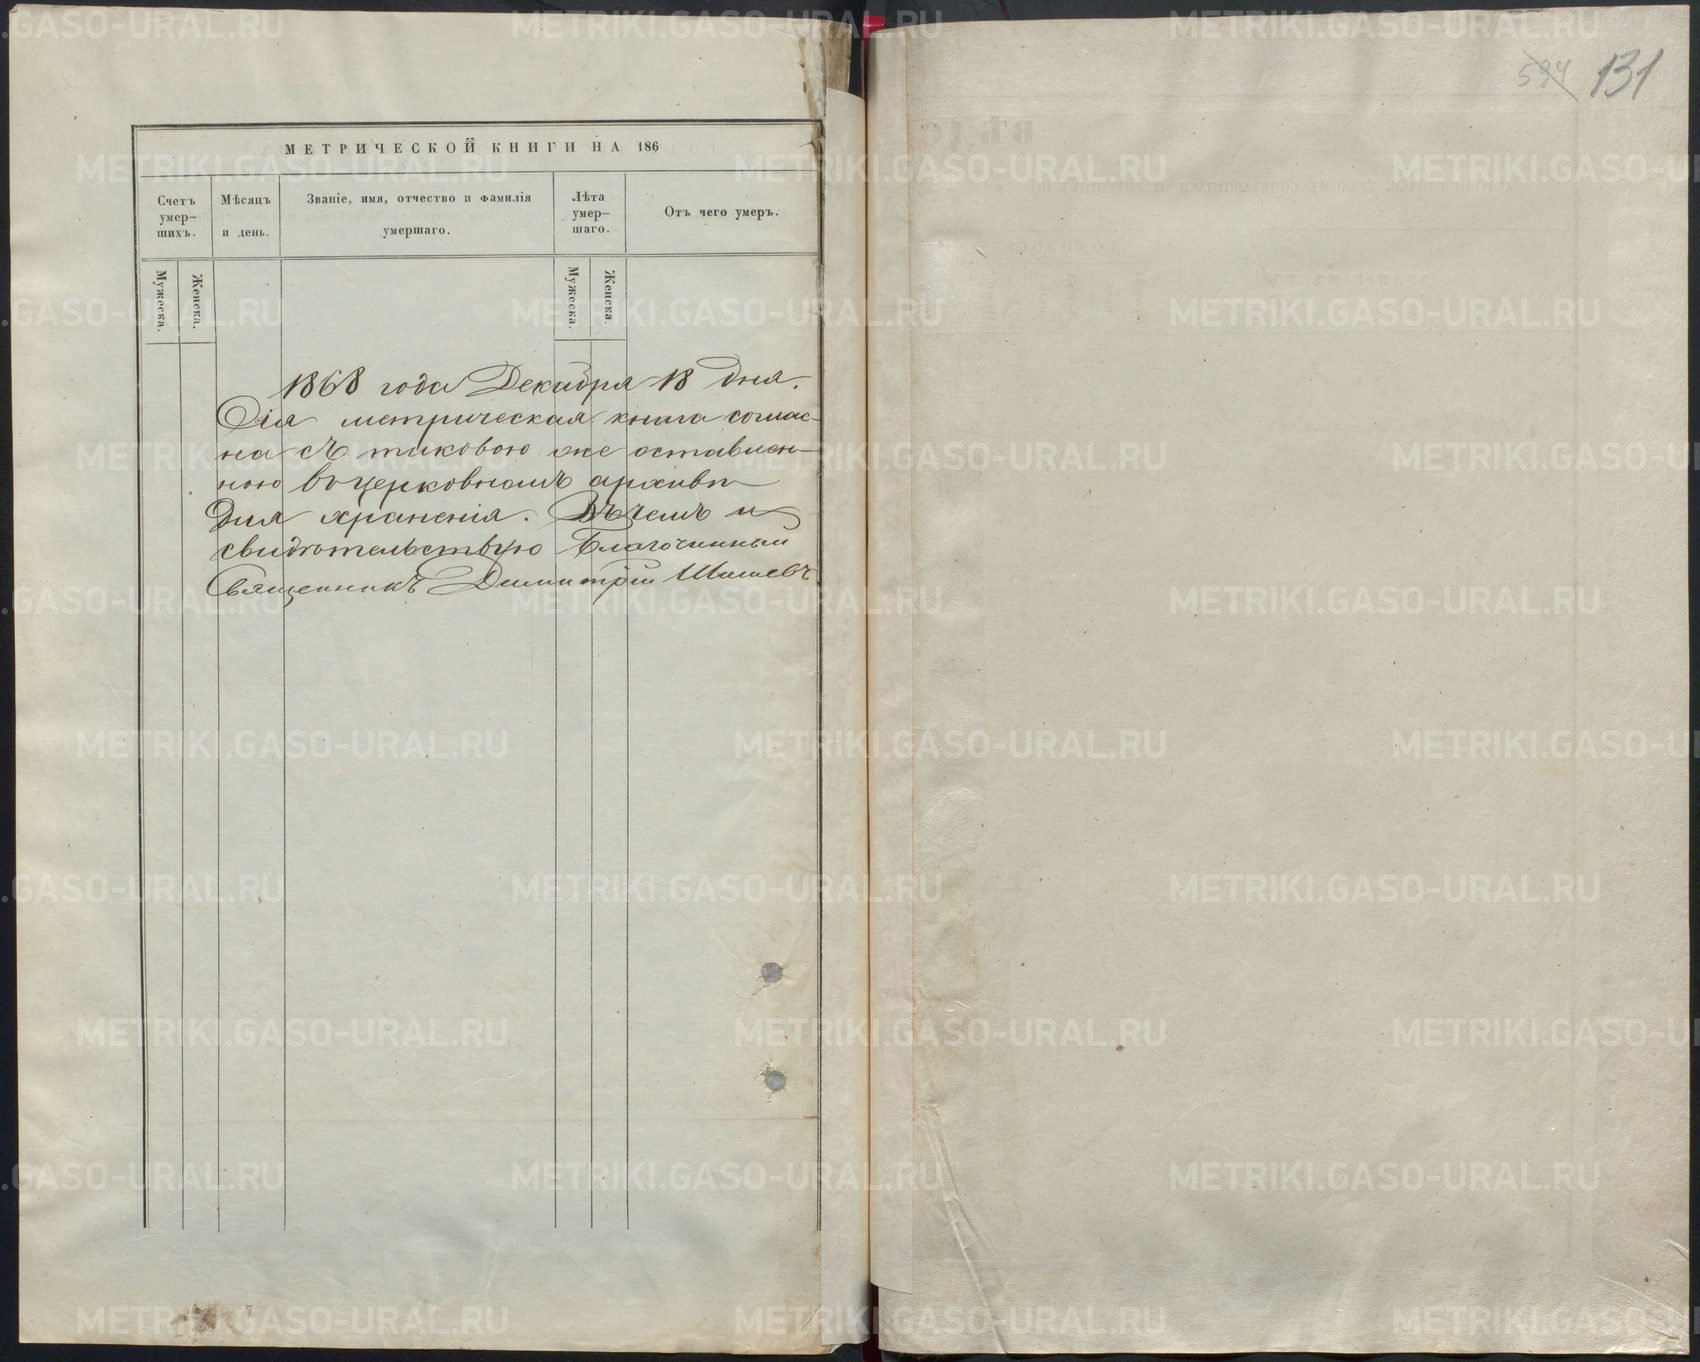 594 131
МЕТРИЧЕСКОЙ КНИГИ НА 186
Счетъ умер–шихъ.
Мѣсяцъ и день.
Званіе, имя, отчество и фамилія умершаго.
Лѣта умер–шаго.
Отъ чего умеръ.
Мужеска.
Женска.
Мужеска.
Женска.
1868 года Декабря 18 дня.
Сія метрическая книга соглас-
на съ таковою же оставлен-
ною въ церковномъ архивѣ
для храненія. Въ чемъ и
свидѣтельствую Благочинный
Священникъ Димитрій
METRIKI.GASO-URAL.RU